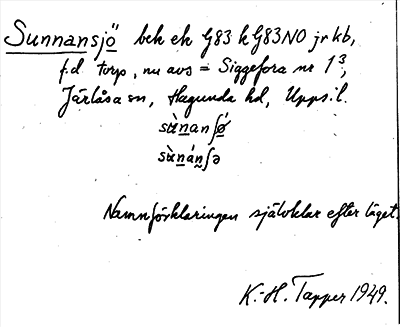 Sunnansjö bek ek G83 k G83NO jr kb,
f.d torp, nu avs = Siggefora nr 1³,
Järlåsa sn, Hagunda hd, Upps. l.
Namnförklaringen självklar efter läget.
K.-H. Tapper 1949.